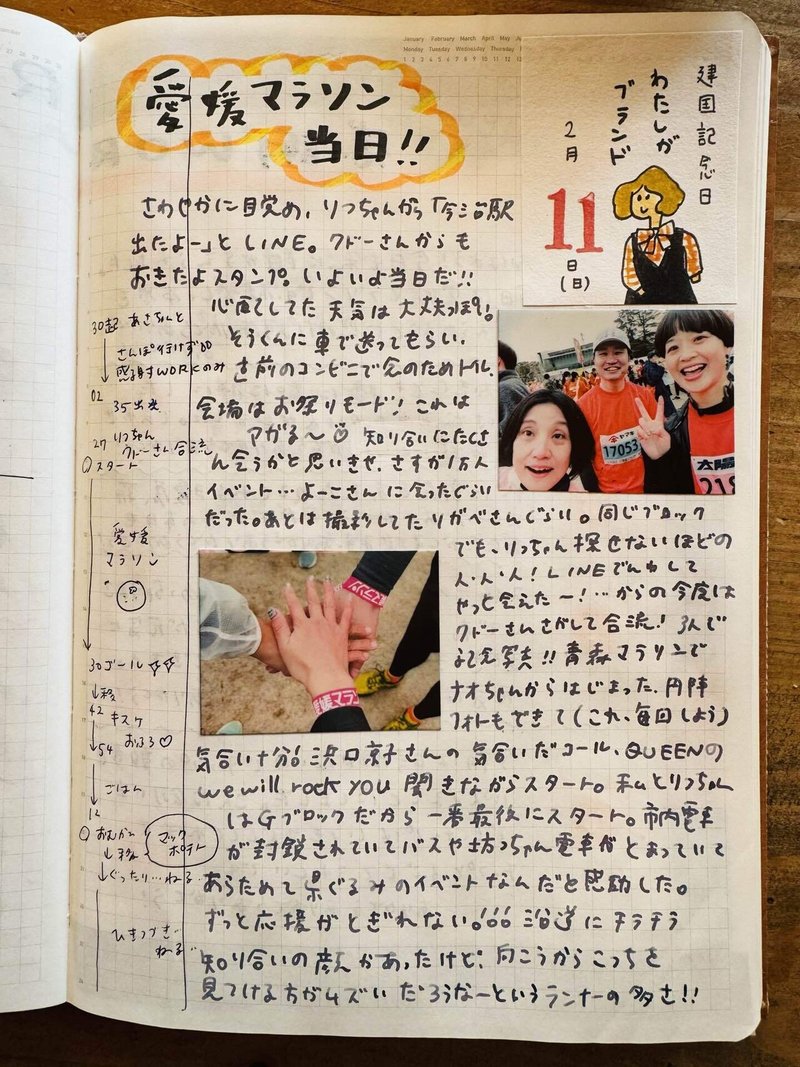 January February March April May Ju
Monday Tuesday Wednesday Thursday
愛媛マラソン
当日!!
建国記念日
わたしが
ブランド
2月
11
日
(日)
さわやかに目覚め、りっちゃんから「今治駅
出たよー」とLINE。クドーさんからも
おきたよスタンプ。いよいよ当日だ!!
心配してた天気は大丈夫っぽい。
そうくんに車で送ってもらい、
直前のコンビニで念のためトイレ。
会場はお祭りモード!これは
アガる〜 知り合いにたくさ
ん会うかと思いきや、さすが1万人
イベント…よーこさんに会ったぐらい
だった。あとは撮影してたりがべさんぐらい。同じブロック
でも、りっちゃん探せないほどの
人・人・人!LINEでんわして
やっと会えたー!…からの今度は
クドーさんさがして合流!3人で
記念写真!!青森マラソンで
ナオちゃんからはじまった、円陣
フォトもできて(これ、毎回しよう)
気合い十分!浜口京子さんの気合いだコール、QUEENの
we will rock you 聞きながらスタート。私とりっちゃん
はGブロックだから一番最後にスタート。市内電車
が封鎖されていてバスや坊っちゃん電車がとまっていて
あらためて県ぐるみのイベントなんだと感動した。
ずっと応援がとぎれない!!! 沿道にチラチラ
知り合いの顔があったけど、向こうからこっちを
見つける方がムズいだろうなーというランナーの多さ!!
30起 あさちゃんと
さんぽ行けず
WORKのみ
02
35出発
27 りっちゃん
クドーさん合流
スタート
愛媛
マラソン
30ゴール☆☆
移
42 キスケ
54 おふろ♡
ごはん
12
マック
ポテト
移
ぐったり…ねる
ひきつづき…
ねる
ヤマキ
17053
太陽
218
愛媛マラソン
マラソン